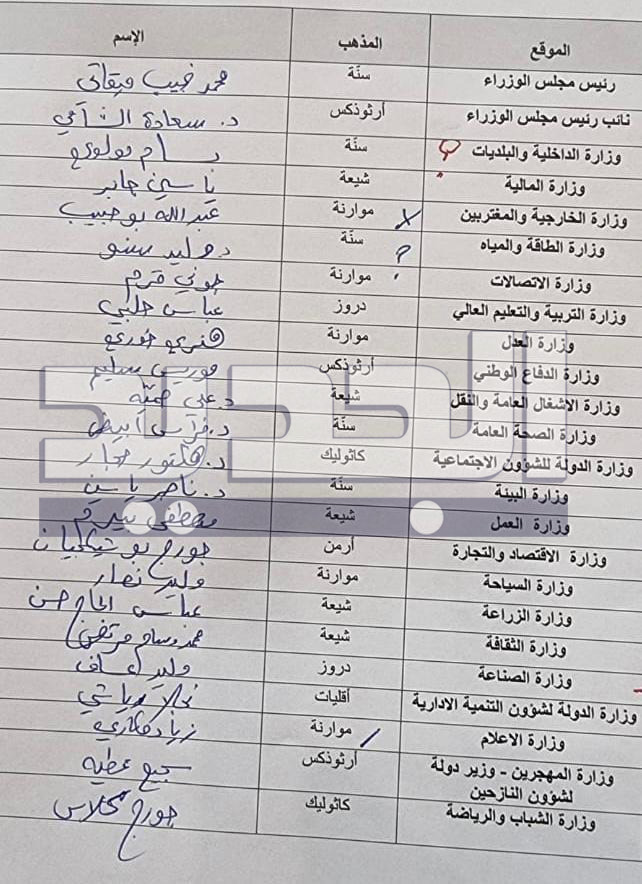 الموقع المذهب الإسم
رئيس مجلس الوزراء سنّة محمد نجيب ميقاتي
نائب رئيس مجلس الوزراء أرثوذكس د. سعادة الشامي
وزارة الداخلية والبلديات سنّة بسام مولوي
وزارة المالية شيعة ياسين جابر
وزارة الخارجية والمغتربين موارنة عبدالله بو حبيب
وزارة الطاقة والمياه سنّة د. وليد سنو
وزارة الاتصالات موارنة جوني قرم
وزارة التربية والتعليم العالي دروز عباس حلبي
وزارة العدل موارنة هنري خوري
وزارة الدفاع الوطني أرثوذكس موريس سليم
وزارة الاشغال العامة والنقل شيعة د. علي حميّه
وزارة الصحة العامة سنّة د. فراس أبيض
وزارة الدولة للشؤون الاجتماعية كاثوليك د. هكتور حجار
وزارة البيئة سنّة د. ناصر ياسين
وزارة العمل شيعة مصطفى بيرم
وزارة الاقتصاد والتجارة أرمن جورج بوشيكيان
وزارة السياحة موارنة وليد نصار
وزارة الزراعة شيعة عباس الحاج حسن
وزارة الثقافة شيعة محمد وسام مرتضى
وزارة الصناعة دروز وليد عساف
وزارة الدولة لشؤون التنمية الادارية أقليات نجلا رياشي
وزارة الاعلام موارنة زياد مكاري
وزارة المهجرين - وزير دولة أرثوذكس سجيع عطيه
لشؤون النازحين
وزارة الشباب والرياضة كاثوليك جورج كلاس
الجديد